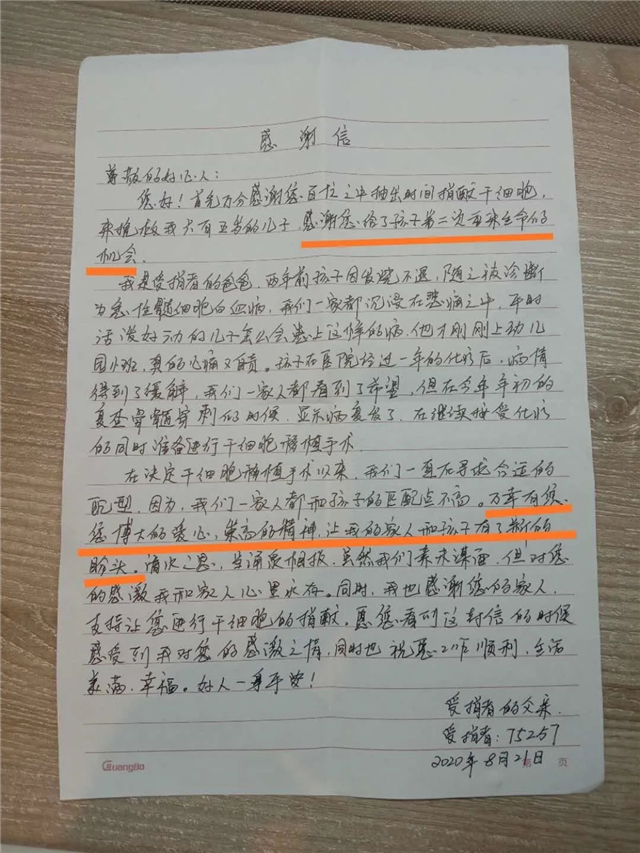 感谢信
尊敬的好心人:
您好!首先万分感谢您百忙之中抽出时间捐献干细胞,
来挽救我只有五岁的儿子 感谢您给了孩子第二次重来生命的
机会.
我是受捐者的爸爸,两年前孩子因发烧不退,随之被诊断
为急性髓细胞白血病,我们一家都沉浸在悲痛之中,平时
活泼好动的儿子怎么会患上这样的病.他才刚刚上幼儿
园小班,真的心痛又自责。孩子在医院经过一年的化疗后,病情
得到了缓解,我们一家人都看到了希望,但在今年年初的
复查骨髓穿刺的时候.显示病复发了.在继续接受化疗
的同时准备进行干细胞移植手术.
在决定干细胞移植手术以来,我们一直在寻求合适的
配型,因为,我们一家人都和孩子的匹配点不高。万幸有您,
您博大的爱心,崇高的精神,让我的家人和孩子有了新的
盼头。滴水之恩,当涌泉相报,虽然我们素未谋面,但对您
的感激我和家人心里永存。同时,我也感谢您的家人,
支持让您进行干细胞的捐献。愿您看到这封信的时候
感受到我对您的感激之情,同时也祝愿工作顺利,生活
美满,幸福。好人一身平安!
受捐者的父亲
受捐者:75257
2020年8月21日
Guangbo 第 页